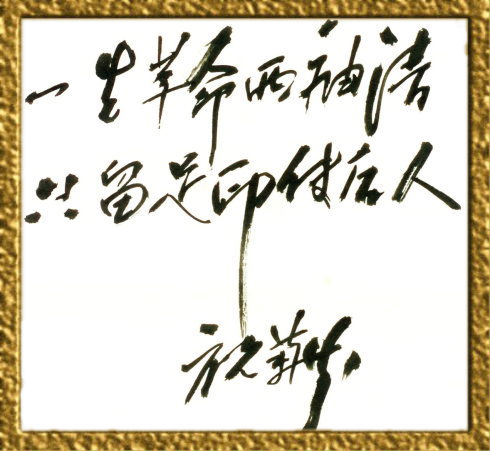 一生革命两袖清
只留足印付后人